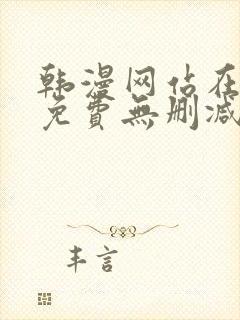 韩漫网站在
免費無删减
丰言